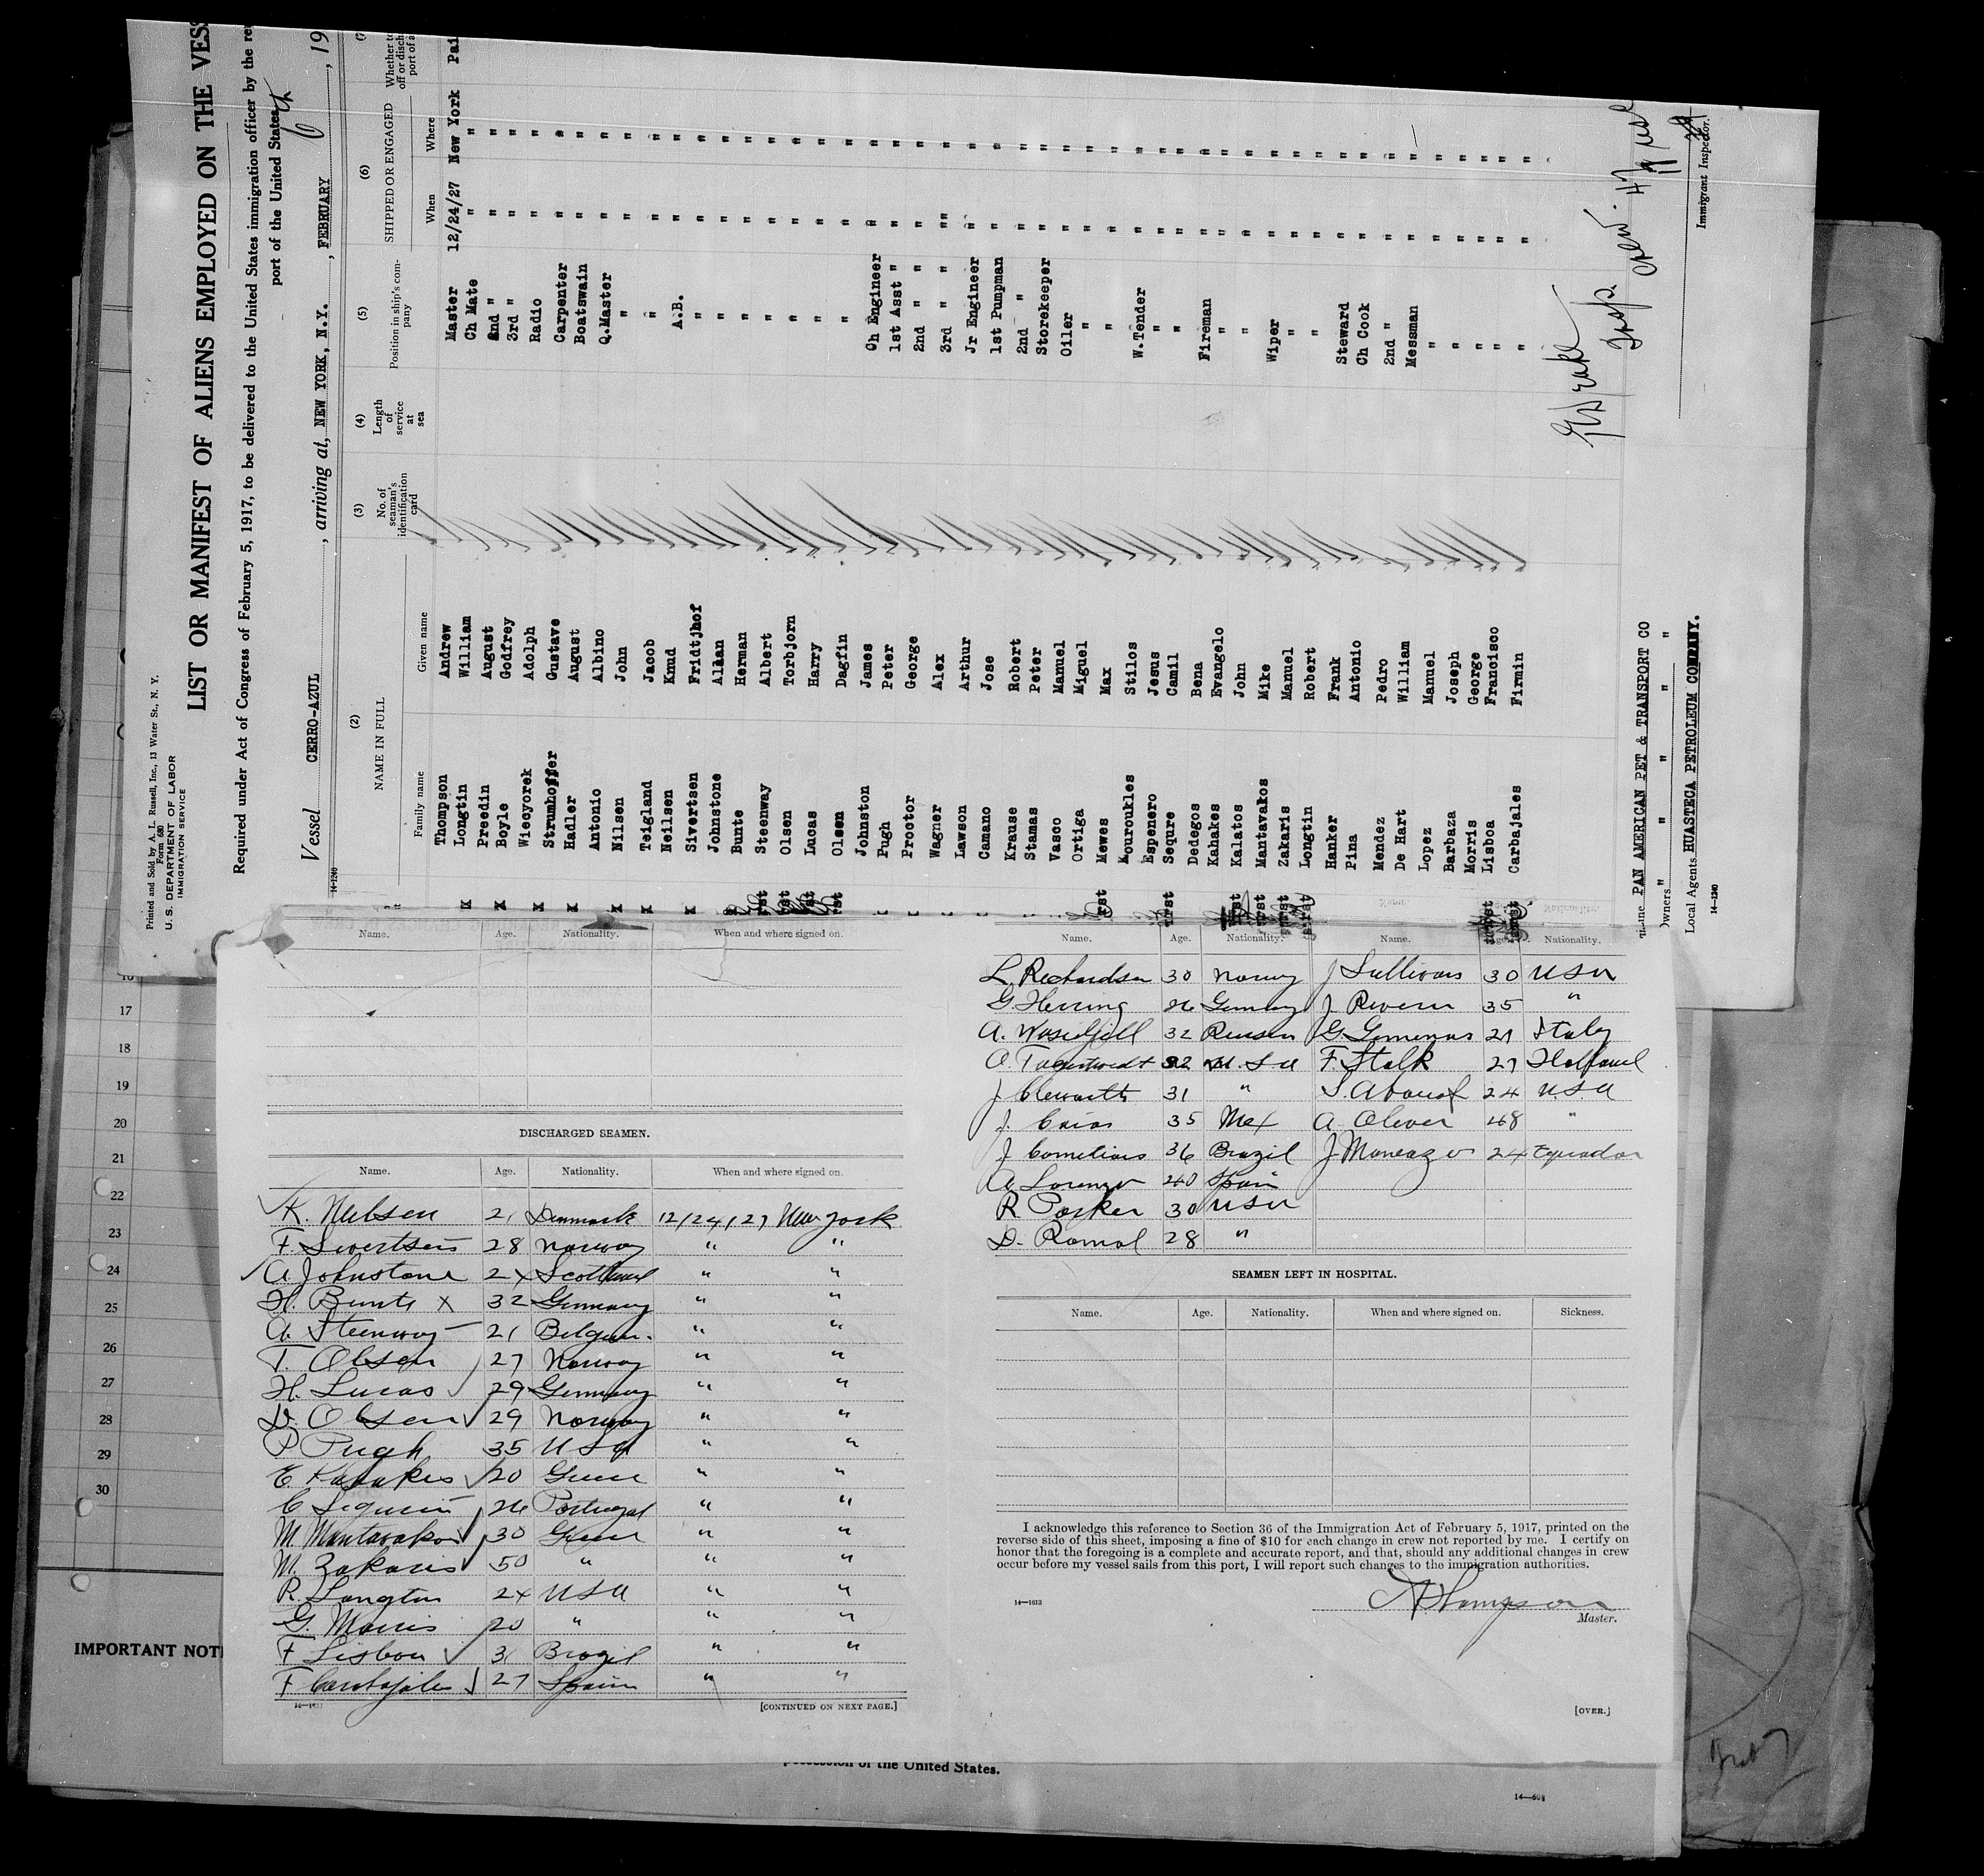 Printed and Sold by A. L. Russell, Inc., 13 Water St., N. Y.
Form 680
U. S. DEPARTMENT OF LABOR
IMMIGRATION SERVICE
LIST OR MANIFEST OF ALIENS EMPLOYED ON THE VESS
Required under Act of Congress of February 5, 1917, to be delivered to the United States immigration officer by the re
port of the United States
Vessel CERRO-AZUL, arriving at, NEW YORK, N.Y., FEBRUARY 6, 19
14-1240
(2) (3) (4) (5) (6) (7)
NAME IN FULL No. of seaman's identification card Length of service at sea Position in ship's company SHIPPED OR ENGAGED Whether to
off or disch
port of a
Family name Given name When Where
Thompson Andrew Master 12/24/27 New York Pai
X Longtin William Ch Mate " "
Preedin August 2nd " " "
X Boyle Godfrey 3rd " " "
X Wiecyorek Adolph Radio " "
X Strumhoffer Gustave Carpenter " "
Hadler August Boatswain " "
Antonio Albino Q.Master " "
X Nilsen John " " "
X Teigland Jacob " " "
Neilsen Knud A.B. " "
X Sivertsen Fridtjhof " " "
Johnstone Allan " " "
Bunte Herman " " "
Steenway Albert " " "
Olsen Torbjorn " " "
Lucas Harry " " "
Olsen Dagfin " " "
Johnston James Ch Engineer " "
Pugh Peter 1st Asst " " "
Proctor George 2nd " " " "
Wagner Alex 3rd " " " "
Lawson Arthur Jr Engineer " "
Camano Jose 1st Pumpman " "
Krause Robert 2nd " " "
Stamas Peter Storekeeper " "
Vasco Manuel Oiler " "
Ortiga Miguel " " "
Mewes Max " " "
Kouroukles Stilos W.Tender " "
Espenero Jesus " " "
Sequre Camil " " "
Dedegos Bena Fireman " "
Kahakes Evangelo " " "
Kalatos John " " "
Mantavakos Mike Wiper " "
Zakaris Manuel " " "
Longtin Robert " " "
Hanker Frank Steward " "
Pina Antonio Ch Cook " "
Mendez Pedro 2nd " " "
De Hart William Messman " "
Lopez Manuel " " "
Barbaza Joseph " " "
Morris George " " "
Lisboa Francisco " " "
Carbajales Firmin " " "
PAN AMERICAN PET & TRANSPORT CO
Owners " " " " "
Local Agents HUASTECA PETROLEUM COMPANY.
14-1240
Immigrant Inspector.
Name. Age. Nationality. When and where signed on.
DISCHARGED SEAMEN.
Name. Age. Nationality. When and where signed on.
K. Neilsen 21 Denmark 12/24/27 New York
F. Sivertsen 28 Norway " "
A. Johnstone 24 Scotland " "
H. Bunte X 32 Germany " "
A. Steenway 21 Belgium. " "
T. Olsen 27 Norway " "
H. Lucas 29 Germany " "
D. Olsen 29 Norway " "
P Pugh 35 USA " "
E Kahakes 20 Greece " "
C Sequeira 26 Portugal " "
M. Mantavakos 30 Greece " "
M. Zakaris 50 " " "
R. Longtin 24 USA " "
G. Morris 20 " " "
F Lisboa 31 Brazil " "
F Carbajales 27 Spain " "
[CONTINUED ON NEXT PAGE.]
Name. Age. Nationality. Name. Age. Nationality.
L. Richardsen 30 Norway J Sullivan 30 USA
G. Herring 26 Germany J. Rivera 35 "
A. 32 Russia G. 27 Italy
O. 32 U.S.A F. Stalk 27 Holland
J. Cleworth 31 " 24 U.S.A
J. 35 Mex A. Oliver 48 "
J 36 Brazil J 24 Equador
A Lorenzo 40 Spain
R. Parker 30 USA
D. Ramal 28 "
SEAMEN LEFT IN HOSPITAL.
Name. Age. Nationality. When and where signed on. Sickness.
I acknowledge this reference to Section 36 of the Immigration Act of February 5, 1917, printed on the
reverse side of this sheet, imposing a fine of $10 for each change in crew not reported by me. I certify on
honor that the foregoing is a complete and accurate report, and that, should any additional changes in crew
occur before my vessel sails from this port, I will report such changes to the immigration authorities.
14—1613
A Thompson
Master.
[OVER.]
17
18
19
20
21
22
23
24
25
26
27
28
29
30
IMPORTANT NOTI
possession of the United States.
14—608